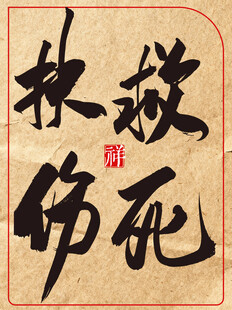 救死
扶伤
祥